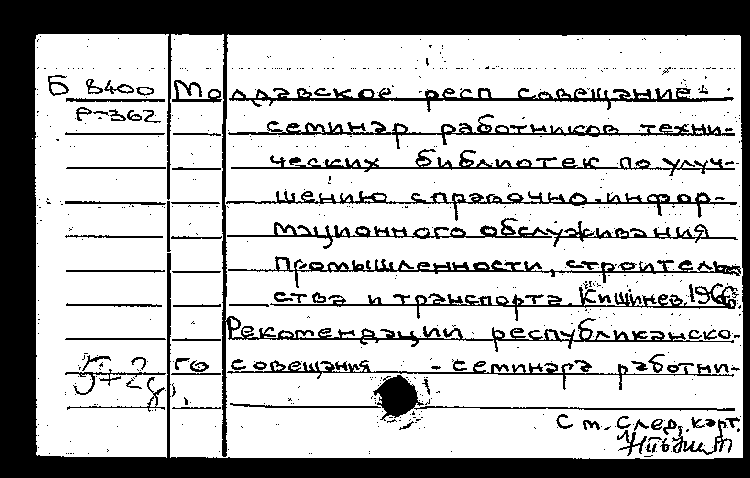 Б 8400 Молдавское респ совещание-
Р-362 семинар работников техни-
ческих библиотек по улуч-
шению справочно-инфор-
мационного обслуживания
промышленности, строитель-
ства и транспорта. Кишинев, 1966.
Рекомендации республиканско-
го совещания - семинара работни-
5+2
См. след. карт.